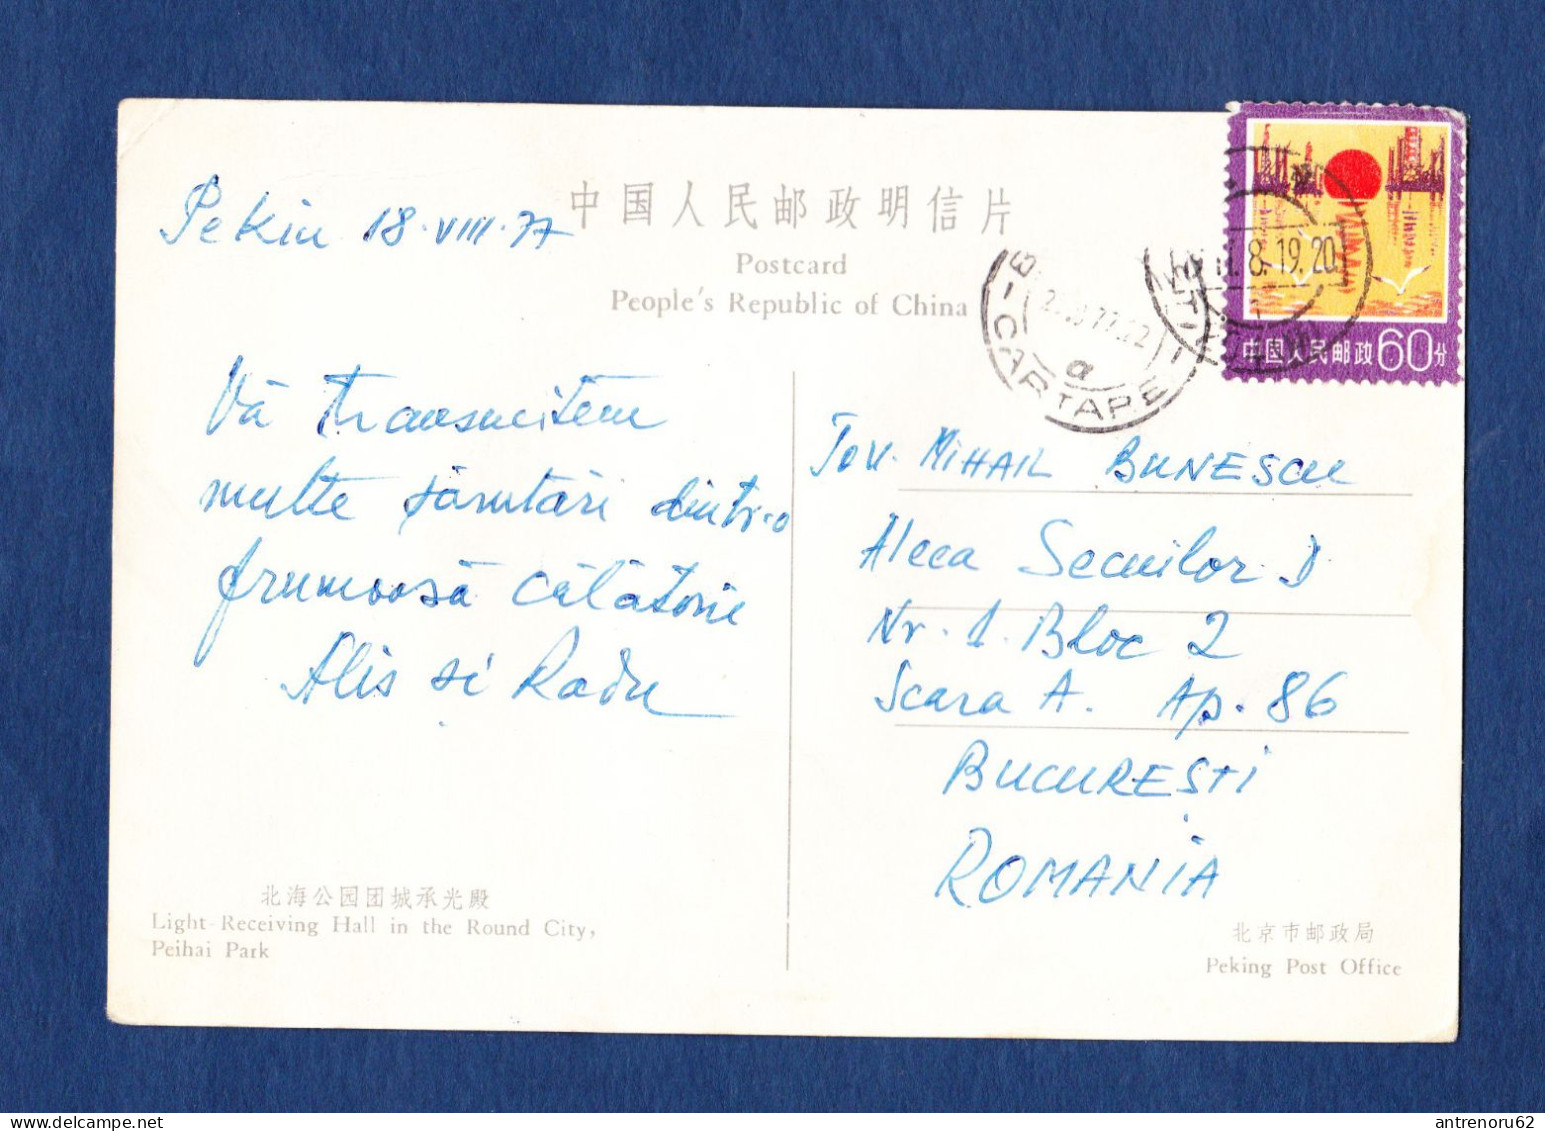 Pekin 18·VIII·77
中国人民邮政明信片
Postcard
People's Republic of China
8.19.20
CARTARE
α
中国人民邮政 60分
Vă transmitem
multe sărutări dintr-o
frumoasă călătorie
Alis si Radu
Tov. MIHAIL BUNESCU
Aleea Secuilor D
Nr. 1. Bloc 2
Scara A. Ap. 86
BUCURESTI
ROMANIA
北海公园团城承光殿
Light-Receiving Hall in the Round City,
Peihai Park
北京市邮政局
Peking Post Office
antrenoru62